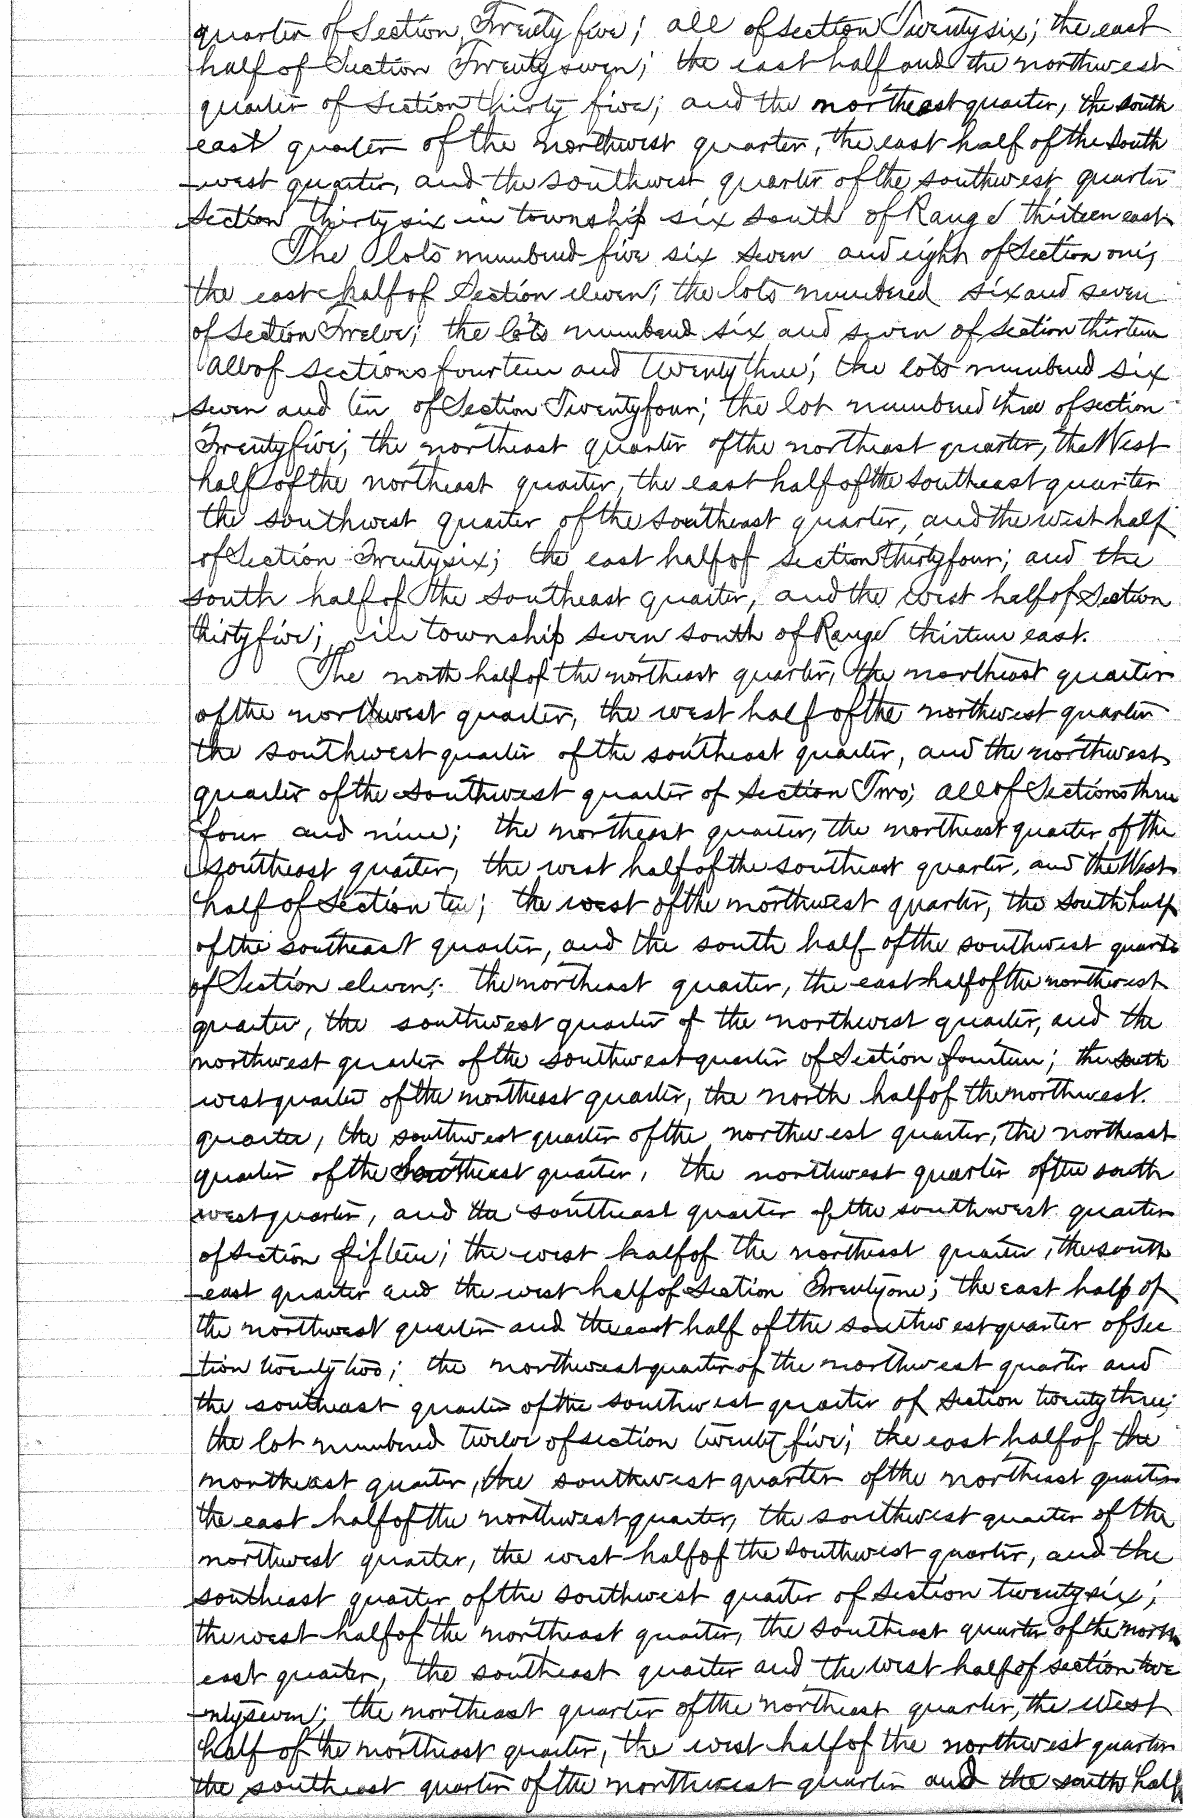 quarter of Section Twenty five; all of section Twenty six; the east
half of Section Twenty seven; the east half and the northwest
quarter of Section thirty five; and the northeast quarter, the south
east quarter of the northwest quarter, the east half of the south
-west quarter, and the southwest quarter of the southwest quarter
Section thirty six in township six south of Range thirteen east
The lots numbered five six seven and eight of Section one;
the east half of Section eleven; the lots numbered six and seven
of Section Twelve; the lots numbered six and seven of Section thirteen
all of sections fourteen and twenty three; the lots numbered six
seven and ten of Section Twenty four; the lot numbered three of section
Twenty five; the northeast quarter of the northeast quarter, the West
half of the northeast quarter, the east half of the southeast quarter
the southwest quarter of the southeast quarter, and the west half
of Section Twenty six; the east half of section thirty four; and the
south half of the southeast quarter, and the west half of Section
thirty five; in township seven south of Range thirteen east.
The north half of the northeast quarter, the northeast quarter
of the northwest quarter, the west half of the northwest quarter
the southwest quarter of the southeast quarter, and the northwest
quarter of the southwest quarter of Section Two; all of Sections three
four and nine; the northeast quarter, the northeast quarter of the
southeast quarter, the west half of the southeast quarter, and the West
half of Section ten; the west of the northwest quarter, the south half
of the southeast quarter, and the south half of the southwest quarter
of Section eleven; the northeast quarter, the east half of the northwest
quarter, the southwest quarter of the northwest quarter, and the
northwest quarter of the southwest quarter of Section fourteen; the south
west quarter of the northeast quarter, the north half of the northwest.
quarter, the southwest quarter of the northwest quarter, the northeast
quarter of the Southeast quarter, the northwest quarter of the south
west quarter, and the southeast quarter of the southwest quarter
of section fifteen; the west half of the northeast quarter, the south
-east quarter and the west half of Section Twenty one; the east half of
the northwest quarter and the east half of the southwest quarter of Sec
tion twenty two; the northwest quarter of the northwest quarter and
the southeast quarter of the southwest quarter of Section twenty three;
the lot numbered twelve of section twenty five; the east half of the
northeast quarter, the southwest quarter of the northeast quarter
the east half of the northwest quarter, the southwest quarter of the
northwest quarter, the west half of the southwest quarter, and the
southeast quarter of the southwest quarter of Section twenty six;
the west half of the northeast quarter, the southeast quarter of the north
east quarter, the southeast quarter and the west half of section twe
-nty seven; the northeast quarter of the northeast quarter, the West
half of the northeast quarter, the west half of the northwest quarter
the southeast quarter of the northwest quarter and the south half